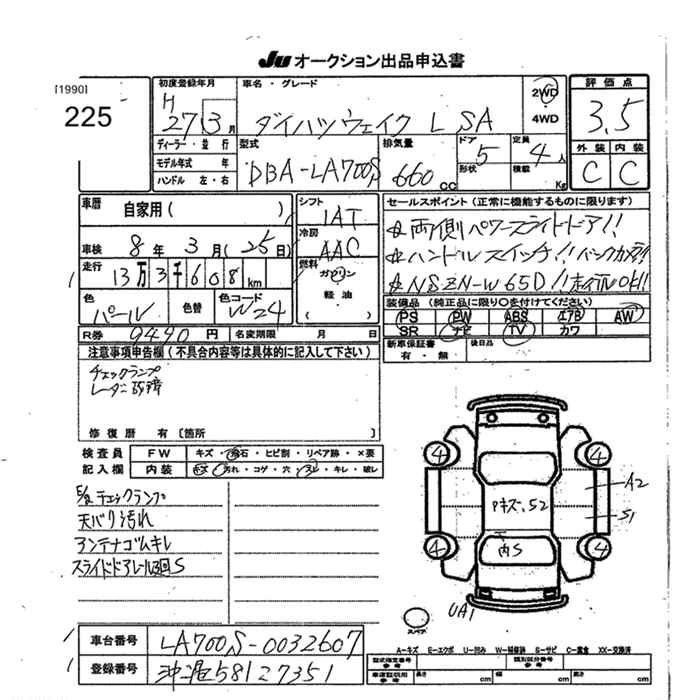 JU オークション出品申込書
[1990]
225
初度登録年月
H
27 3 月
車名 ・ グレード
ダイハツ ウェイク L SA
2WD
4WD
評 価 点
3.5
外 装 内 装
C C
ディーラー ・ 並 行
モデル年式 年
ハンドル 左 ・ 右
型式
DBA-LA700S
排気量
660 cc
ドア
5
形状
定員
4 人
積載
Kg
車歴
自家用 ( )
車検 8 年 3 月 ( 25 日)
走行 13 万 3 千 6 0 8 km
色
パール
色替
色コード
W24
シフト
IAT
冷房
AAC
燃料
ガソリン
軽 油
セールスポイント (正常に機能するものに限ります)
☆両側パワースライドドア!!
☆ハンドルスイッチ!! バックカメラ!!
☆NSZN-W65D!! 走行OK!!
装備品 (純正品に限り○を付けてください)
PS PW ABS エアB AW
SR ナビ TV カワ
R券 9490 円
名変期限 月 日
新車保証書
有 ・ 無
後日品
注意事項申告欄 ( 不具合内容等は具体的に記入して下さい )
チェックランプ
修 復 歴 有 〔箇所 〕
検 査 員
記 入 欄
FW キズ ・ 飛石 ・ ヒビ割 ・ リペア跡 ・ ×要
内装 キズ ・ 汚れ ・ コゲ ・ 穴 ・ スレ ・ キレ ・ 破レ
チェックランプ
天バリ汚れ
アンテナゴムキレ
スライドドアレール S
4 4
A2
Pキズ、S2
S1
4 内S 4
UA1
スペア
A-キズ E-エクボ U-凹み W-補修跡 S-サビ C-腐食 XX-交換済
車台番号 LA700S-0032607
登録番号 沖縄 581 27351
型式指定番号
参考
類別区分番号
参考
車庫証明用
参考
長さ cm 幅 cm 高さ cm